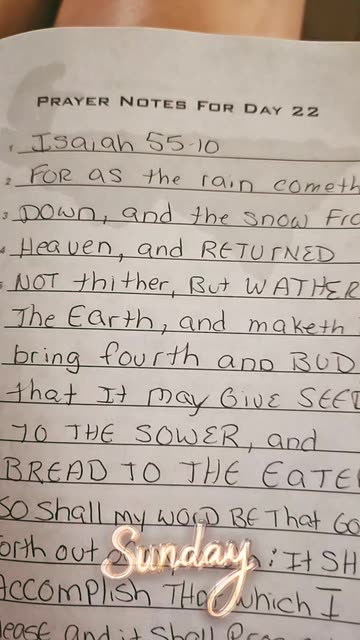 PRAYER NOTES FOR DAY 22
1 Isaiah 55-10
2 FOR as the rain cometh
3 DOWN, and the SNOW Fro
4 Heaven, and RETURNED
5 NOT thither, But WATHER
The Earth, and maketh
bring fourth and BUD
that It may GIVE SEED
TO THE SOWER, and
BREAD TO THE EATE
SO Shall my WORD BE That Go
orth out : It SH
Sunday
Accomplish which I
lease and it shall